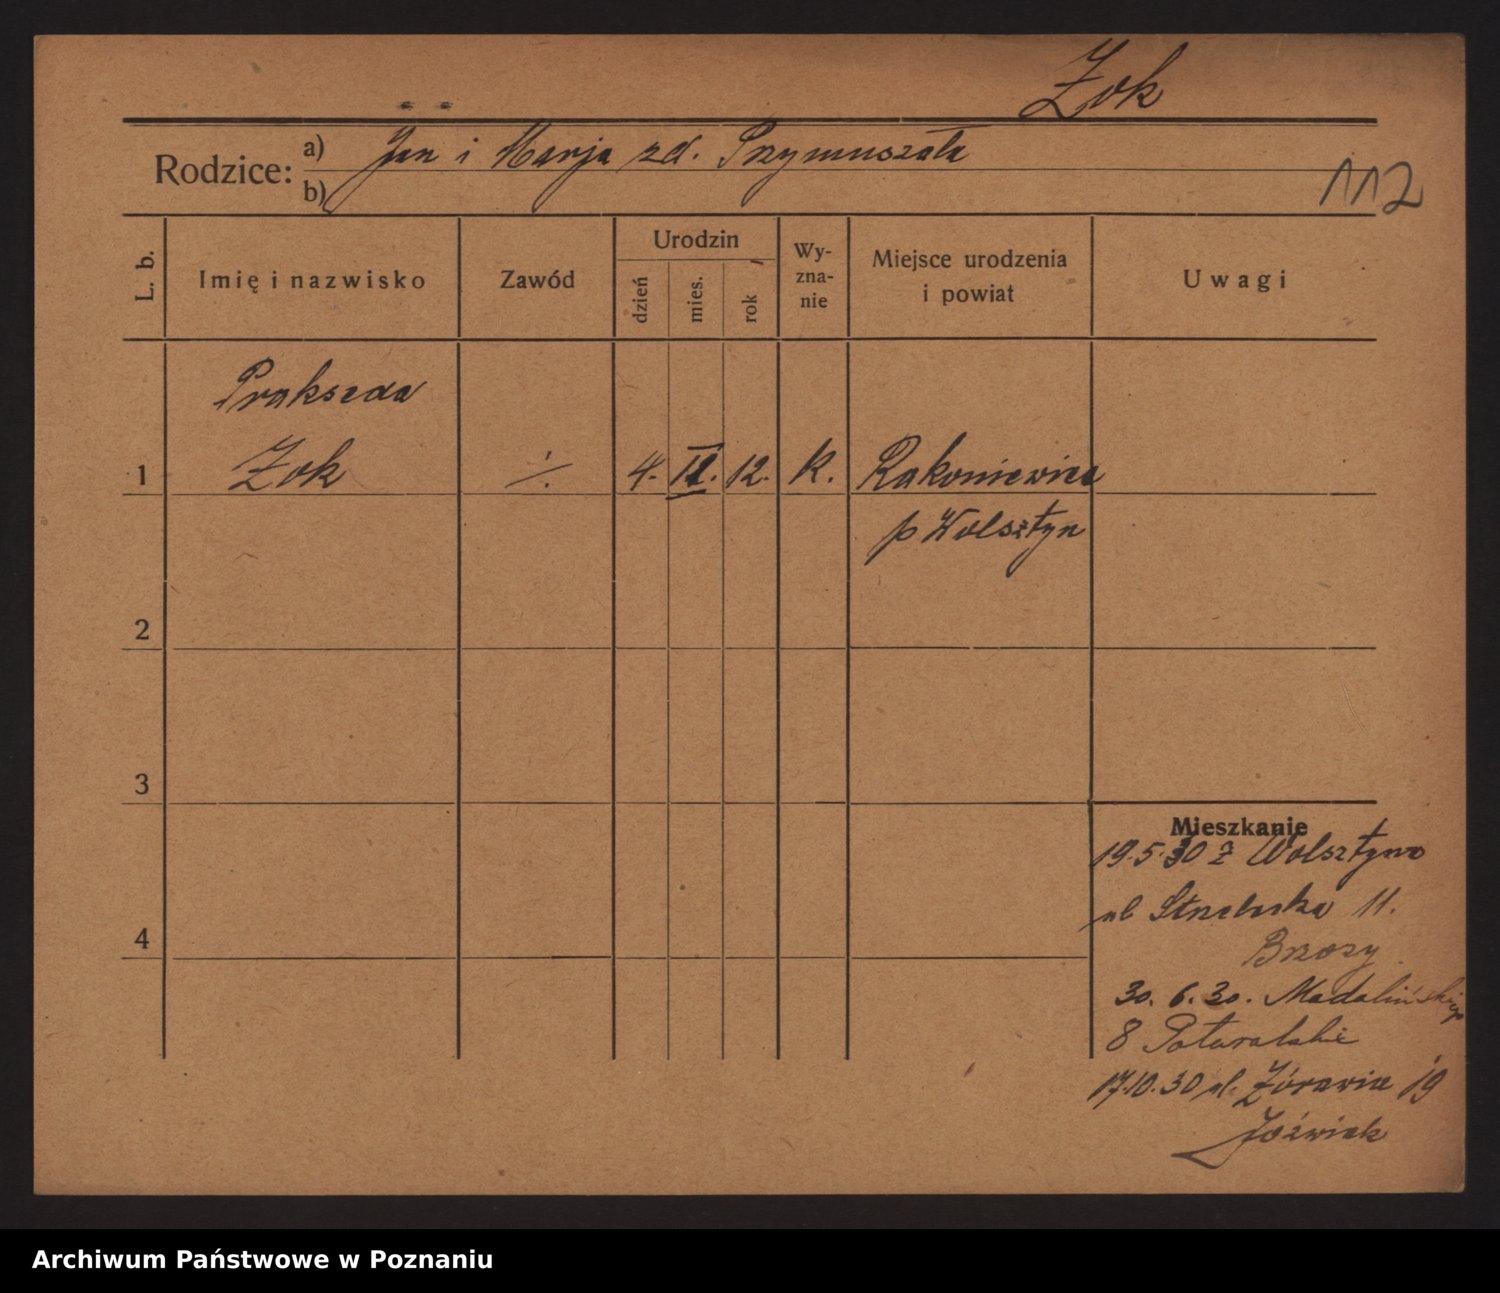 Żok
Rodzice: a) Jan i Marja zd. Przymuszała
b)
112
L. b.
Imię i nazwisko
Zawód
Urodzin
dzień
mies.
rok
Wy-
zna-
nie
Miejsce urodzenia
i powiat
Uwagi
Prakseda
1 Żok ·/. 4. II. 12. K. Rakoniewice
p Wolsztyn
2
3
4
Mieszkanie
19.5.30 z Wolsztyna
ul Strzelecka 11.
Brzozy
30. 6. 30. Madalińskiego
8 Poturalski
17.10.30 ul. Żórawia 19
Jóźwiak
Archiwum Państwowe w Poznaniu